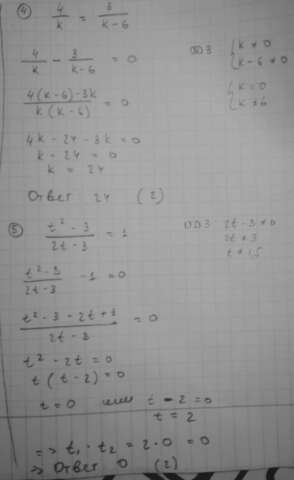 ④ 4/k = 3/(k-6)
4/k - 3/(k-6) = 0 ОДЗ {k ≠ 0
{k-6 ≠ 0
(4(k-6)-3k)/(k(k-6)) = 0 {k = 0
{k ≠ 6
4k - 24 - 3k = 0
k - 24 = 0
k = 24
Ответ 24 (2)
⑤ (t² - 3)/(2t - 3) = 1 ОДЗ 2t - 3 ≠ 0
2t ≠ 3
t ≠ 1,5
(t² - 3)/(2t - 3) - 1 = 0
(t² - 3 - 2t + 3)/(2t - 3) = 0
t² - 2t = 0
t(t - 2) = 0
t = 0 или t - 2 = 0
t = 2
=> t₁ · t₂ = 2 · 0 = 0
=> Ответ 0 (2)